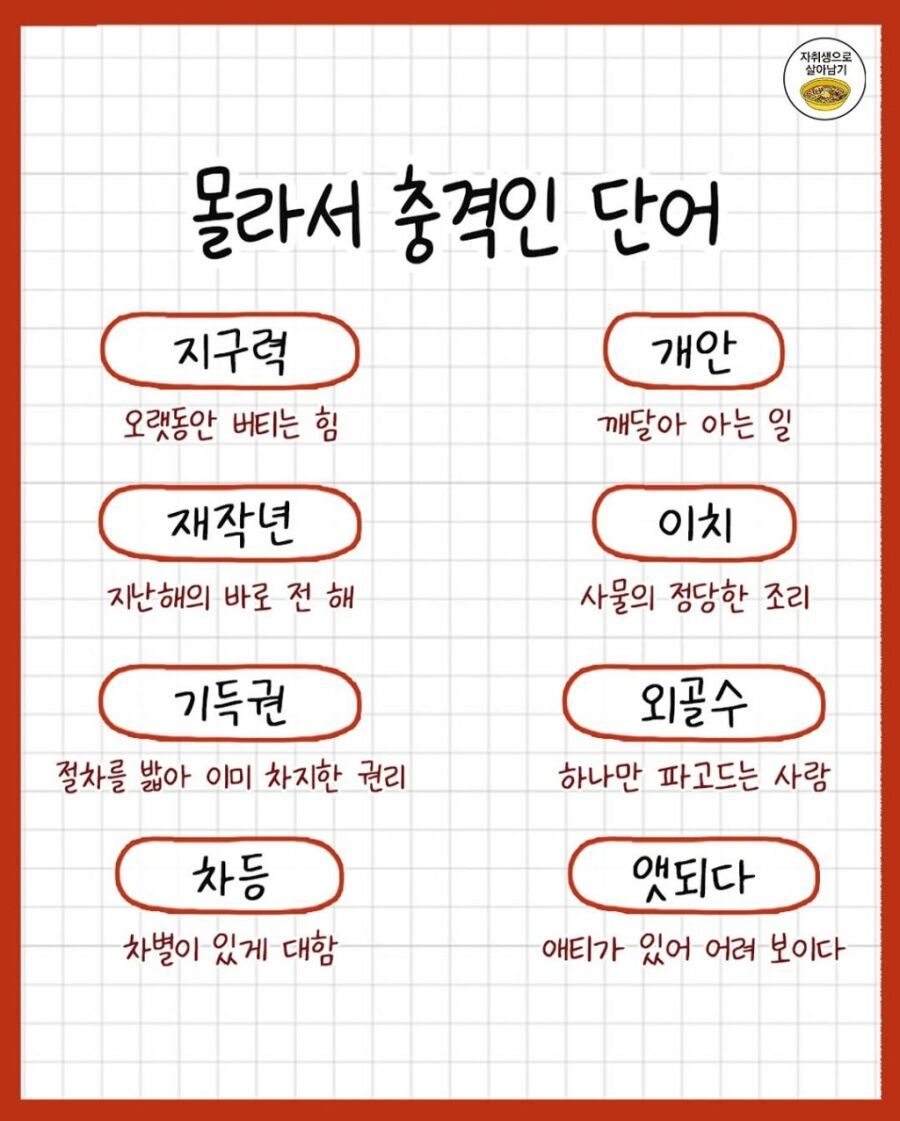 자취생으로
살아남기
몰라서 충격인 단어
지구력
오랫동안 버티는 힘
개안
깨달아 아는 일
재작년
지난해의 바로 전 해
이치
사물의 정당한 조리
기득권
절차를 밟아 이미 차지한 권리
외골수
하나만 파고드는 사람
차등
차별이 있게 대함
앳되다
애티가 있어 어려 보이다